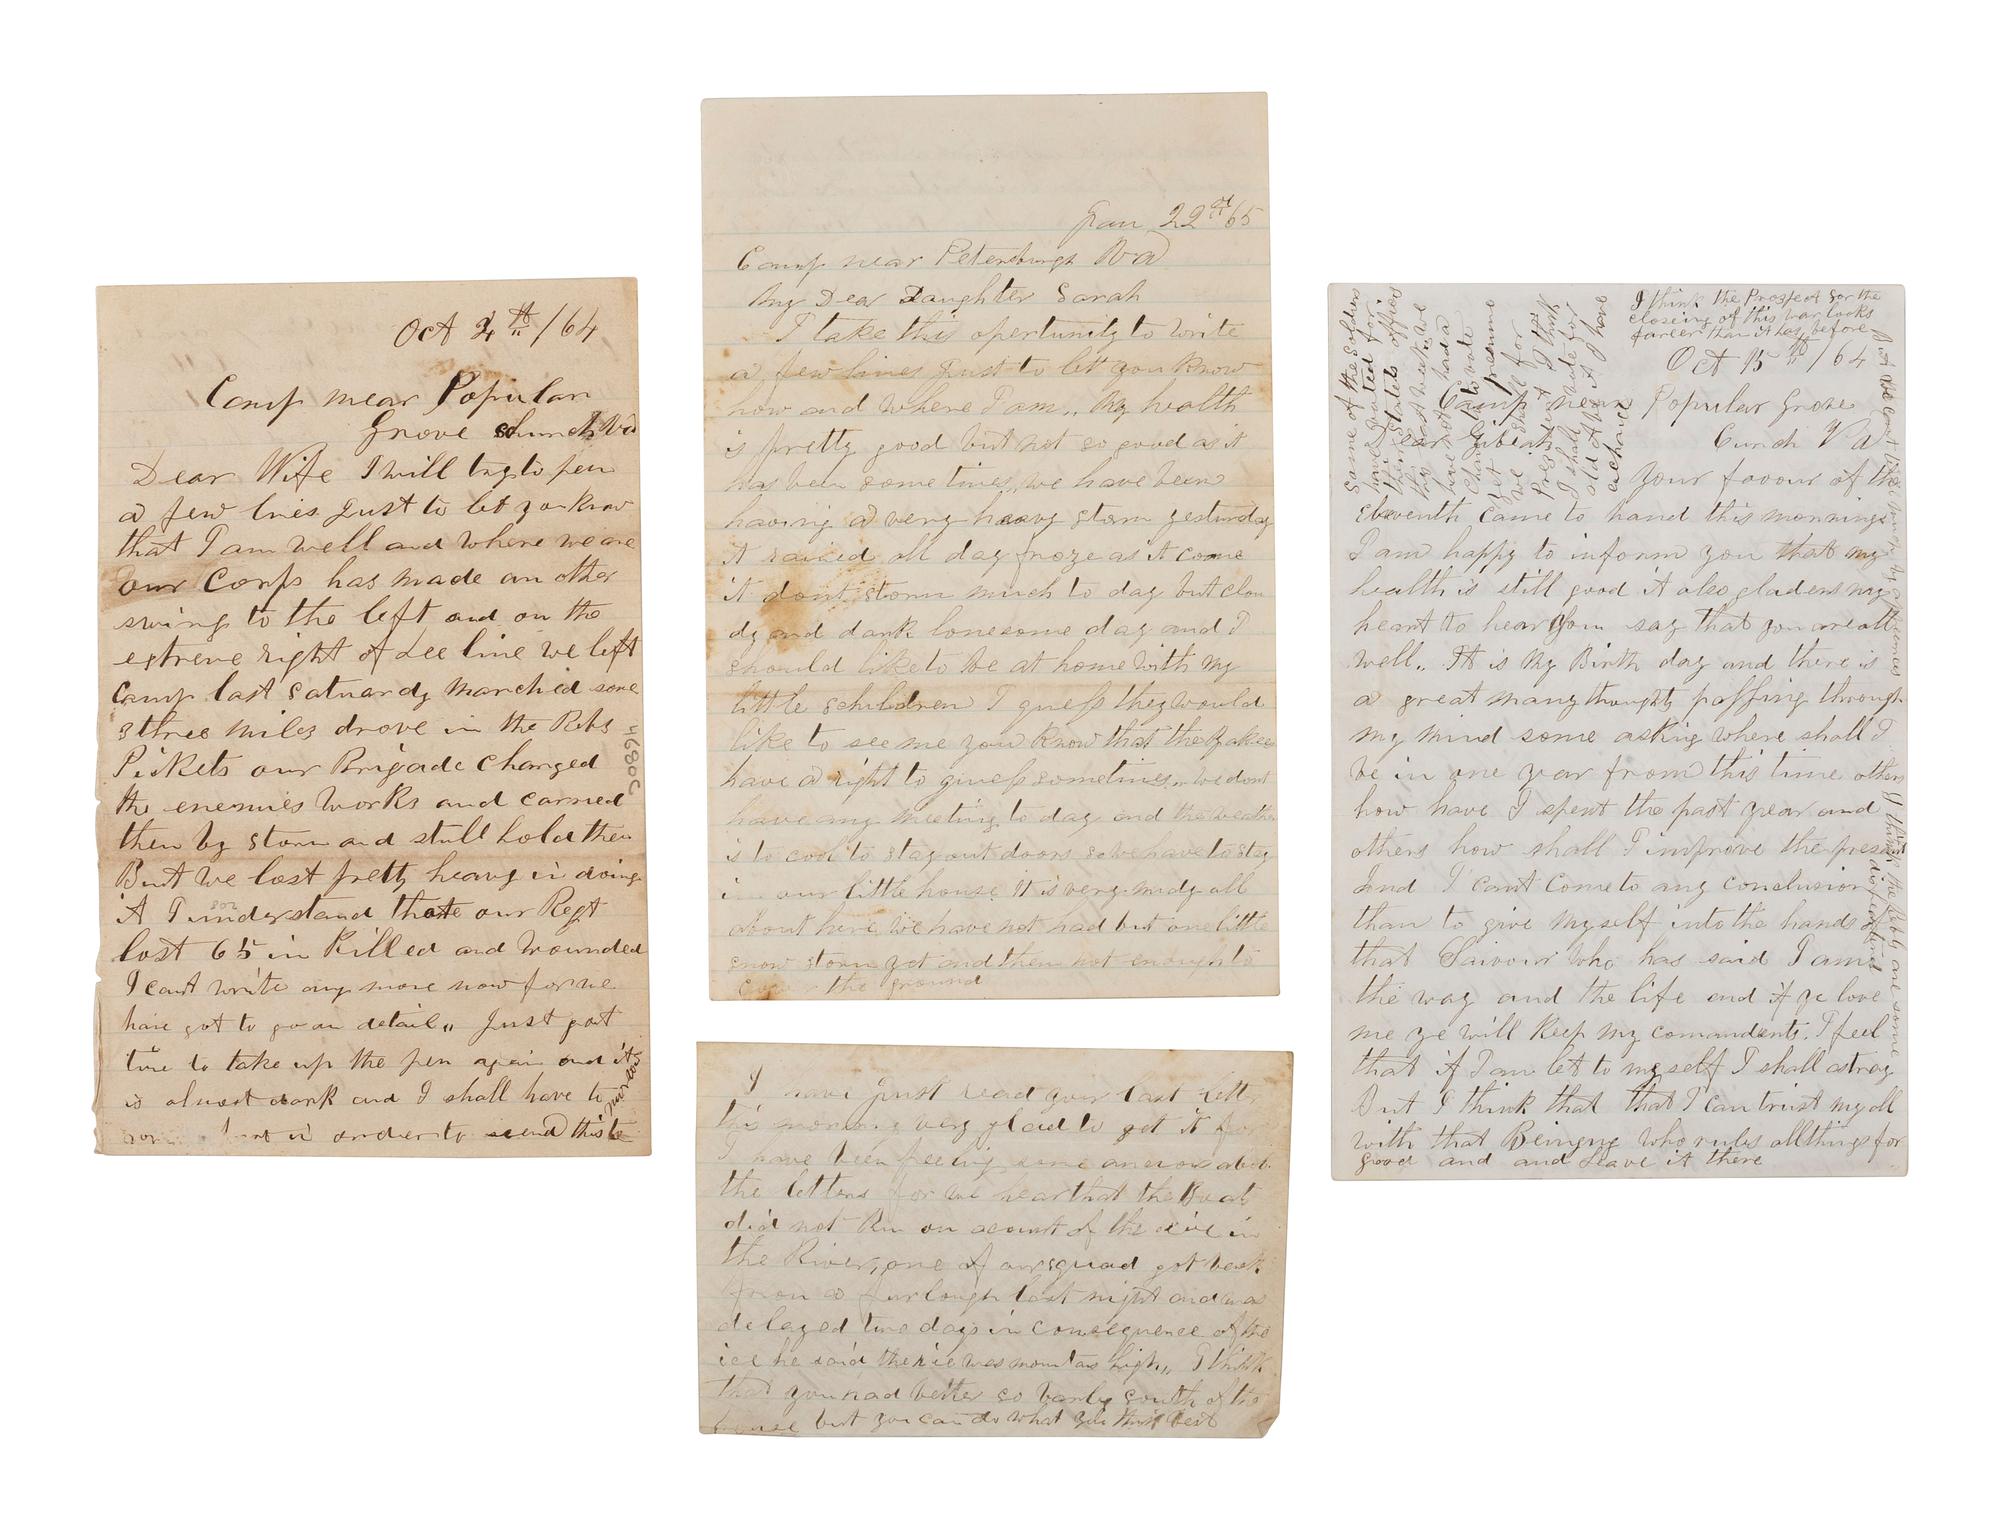 Oct 4th /64
Camp near Popular
Grove church Va
Dear Wife I will try to pen
a few lines Just to let you know
that I am well and where we are
our Corps has made an other
swing to the left and on the
extreme right of Lee line we left
Camp last Satuardy marched some
three miles drove in the Rebs
Pickets our Brigade Charged
the enemies works and carried
them by storm and still hold them
But we lost pretty heavy in doing
it I understand that our Regt
lost 65 in Killed and wounded
I cant write any more now for we
have got to go on detail,, Just got
time to take up the pen again and its
is almost dark and I shall have to
in order to send this to
4680C
Jan 22nd 65
Camp near Petersburgh Va
My Dear Daughter Sarah
I take this opertunity to write
a few lines Just to let you know
how and where I am,, My health
is pretty good but not so good as it
has been sometimes,, we have been
having a very heavy storm yesturday
it rained all day froze as it come
it dont storm much to day but clou
dy and dark lonesome day and I
should like to be at home with my
little schildren I guess they would
like to see me you know that the Yakees
have a right to guess sometimes,, we dont
have any meeting to day and the weather
is to cool to stay out doors so we have to stay
in our little house it is very mudy all
about here we have not had but one little
snow storm yet and then not enough to
cover the ground
I have Just read your last letter
this morning very glad to get it for
I have been feeling some about
the letters for we hear that the Boat
did not Run on acount of the ice in
the River, one of our squad got back
from a furlough last night and was
delayed two days in consequence of the
ice he said the ice was high,, I think
that you had better so barly south of the
house but you can do what you think best
I think the Prospect for the
closeing of this war looks
farer than it has before
Oct 15th /64
Camp near Popular Grove
Curch Va
Dear
Your favour of the
eleventh came to hand this morning
I am happy to inform you that my
health is still good it also gladens my
heart to hear you say that you are all
well,, It is My Birth day and there is
a great many thoughts passing through
my mind some asking where shall I
be in one year from this time others
how have I spent the past year and
others how shall I improve the present
And I cant come to any conclusion
than to give myself into the hands of
that Saivour who has said I am
the way and the life and if ye love
me ye will Keep my comandents. I feel
that if I am let to myself I shall astray
But I think that that I can trust my all
with that Beingng who rules all things for
good and and leave it there
Some of the Soldiers
have voted for
their States offices
they
have not had a
chance to vote
yet
we shall for
President I think
I shall vote for
old Abe if I have
a chance
I think the Rebs are some